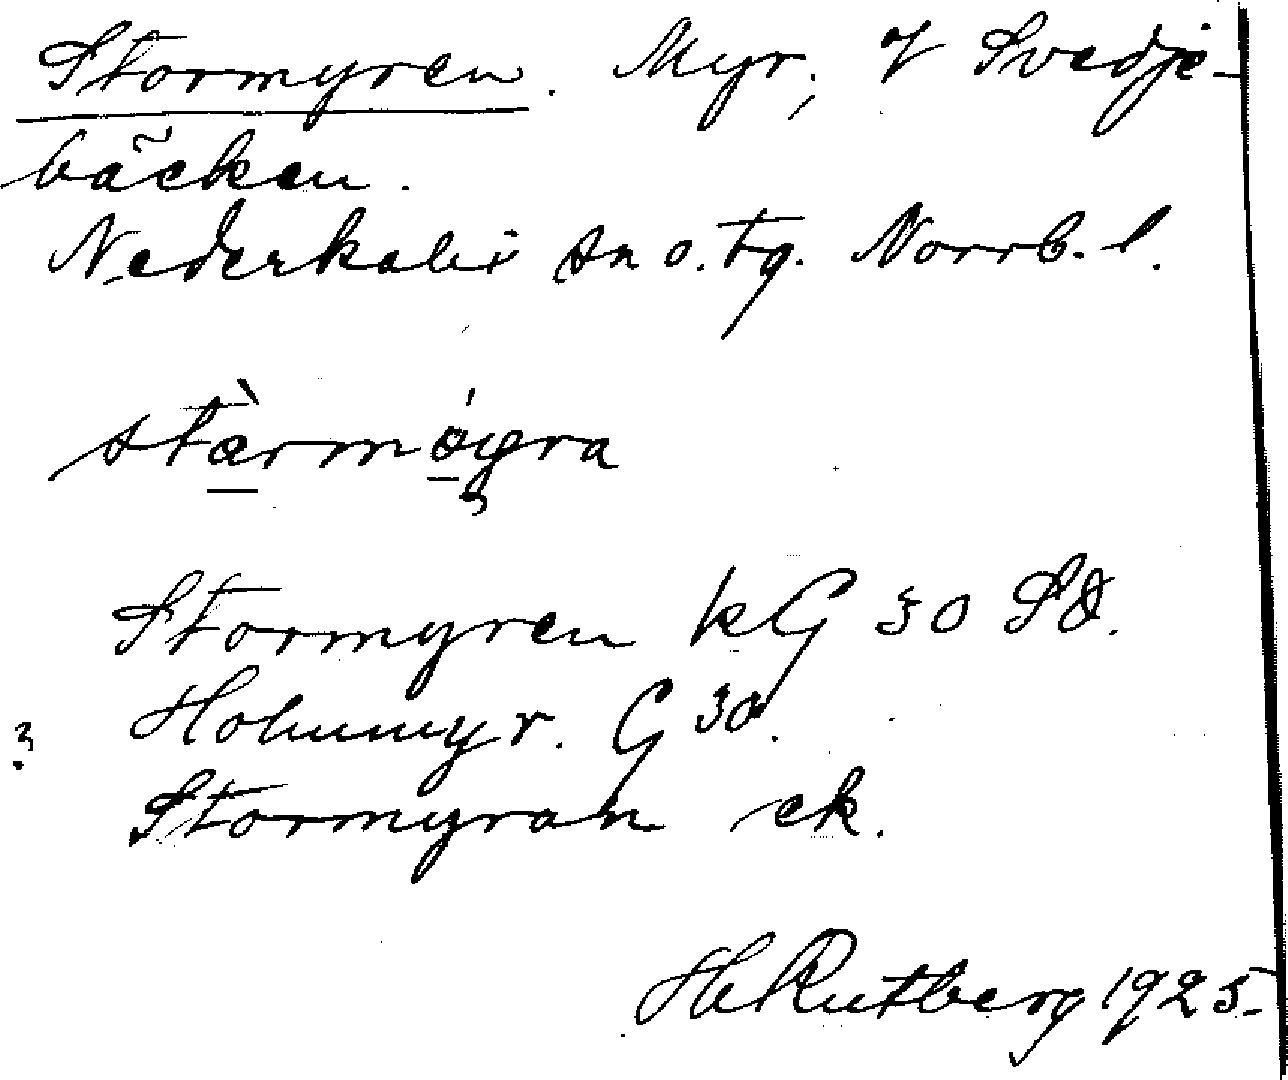 Stormyren. Myr, V Svedje-
bäcken.
Nederkalix sn o. tg. Norrb. l.
stæ̀rmǿyra
Stormyren kG 30 SO.
? Holmmyr. G 30.
Stormyran ek.
H Rutberg 1925